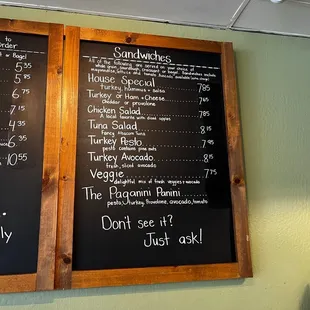 to
Order
or Bagel
5
5.85
6
7.15
4.35
6.35
10.55
ly
Sandwiches
All of the following are served on your choice of
whole grain, sourdough, croissant or bagel. Sandwiches include
mayonnaise, lettuce and tomato.
House Special 7.85
turkey, hummus + salsa
Turkey or Ham + Cheese 7.65
cheddar or provolone
Chicken Salad 7.85
A local favorite with diced apples
Tuna Salad 8.15
fancy albacore tuna
Turkey Pesto 7.95
pesto contains pine nuts
Turkey Avocado 8.15
fresh, sliced avocado
Veggie 7.75
delightful mix of fresh veggies +
The Paganini Panini
pesto, turkey, provolone, avocado, tomato
Don't see it?
Just ask!